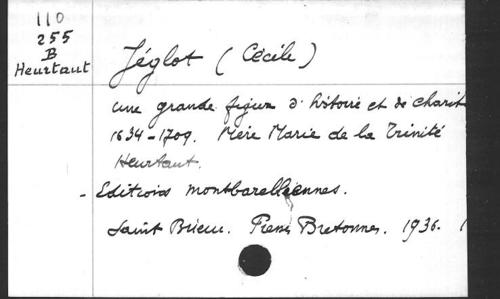 110
255
B
Heurtaut
Jéglot (Cécile)
une grande figure d'histoire et de charit
1634-1709. Mère Marie de la Trinité
Heurtaut.
- Editions montbareleiennes.
Saint Brieuc. Presses Bretonnes. 1936.